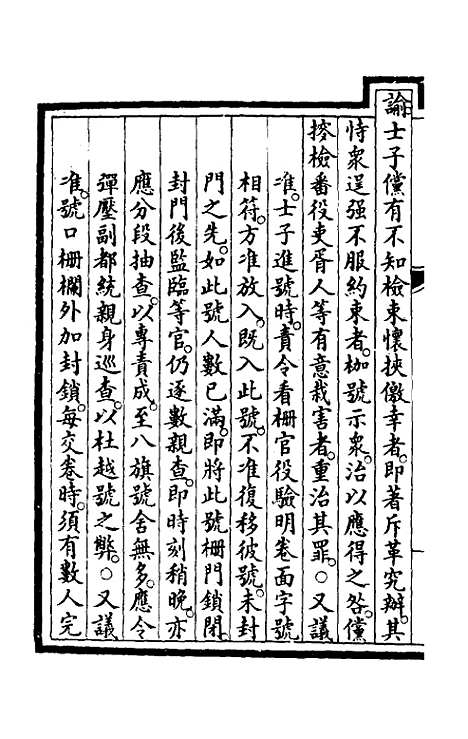 諭士子儻有不知檢束懷挾儌幸者。即著斥革究辦。其
恃衆逞强不服約束者。枷號示衆。治以應得之咎。儻
搜檢番役吏胥人等有意栽害者。重治其罪。○又議
准。士子進號時。責令看柵官役驗明卷面字號
相符。方准放入。既入此號。不准復移彼號。未封
門之先。如此號人數已滿。即將此號柵門鎖閉。
封門後監臨等官。仍逐數親查。即時刻稍晚。亦
應分段抽查。以專責成。至八旗號舍無多。應令
彈壓副都統親身巡查。以杜越號之弊。○又議
准。號口柵欄外加封鎖。每交卷時。須有數人完